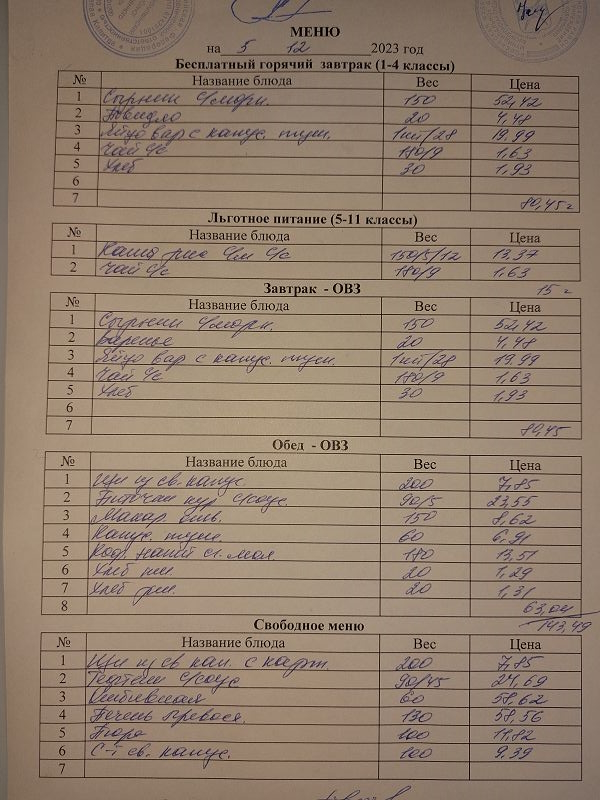 МЕНЮ
на 5 12 2023 год
Бесплатный горячий завтрак (1-4 классы)
№ Название блюда Вес Цена
1 Сырники с/морк. 150 52,42
2 Повидло 20 4,48
3 Яйцо вар с капус. туш. 1шт/28 19,99
4 Чай с/с 180/9 1,63
5 Хлеб 30 1,93
6
7 80,45
Льготное питание (5-11 классы)
№ Название блюда Вес Цена
1 Каша рис с/м с/с 150/5/12 13,37
2 Чай с/с 180/9 1,63
15
Завтрак - ОВЗ
№ Название блюда Вес Цена
1 Сырники с/морк. 150 52,42
2 Варенье 20 4,48
3 Яйцо вар с капус. туш. 1шт/28 19.99
4 Чай с/с 180/9 1,63
5 Хлеб 30 1,93
6
7 80,45
Обед - ОВЗ
№ Название блюда Вес Цена
1 Щи из св. капус. 200 7,85
2 Биточки кур с/соус. 90/5 23,55
3 Макар. отв. 150 8,62
4 Капус. туш. 60 6.91
5 Коф. напит сг. мол 180 13,51
6 Хлеб пш. 20 1,29
7 Хлеб рж. 20 1,31
8 63,04
143,49
Свободное меню
№ Название блюда Вес Цена
1 Щи из св кап. с карт. 200 7,85
2 Тефтели с/соус 90/45 24,69
3 60 58,62
4 Печень 130 58,56
5 Пюре 100 11,82
6 С-т св. капус. 100 9.39
7